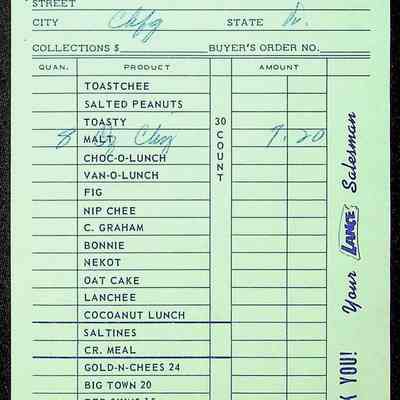 STREET
CITY Chfg STATE In.
COLLECTIONS $ BUYER'S ORDER NO.
QUAN. PRODUCT AMOUNT
TOASTCHEE
SALTED PEANUTS
TOASTY
8 MALT 7.20
CHOC-O-LUNCH
VAN-O-LUNCH
FIG
NIP CHEE
C. GRAHAM
BONNIE
NEKOT
OAT CAKE
LANCHEE
COCOANUT LUNCH
SALTINES
CR. MEAL
GOLD-N-CHEES 24
BIG TOWN 20
30 COUNT
YOU!
Your LANCE Salesman